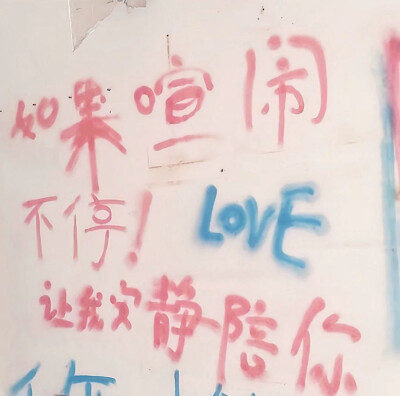 如果喧闹
不停! LOVE
让我安静陪你